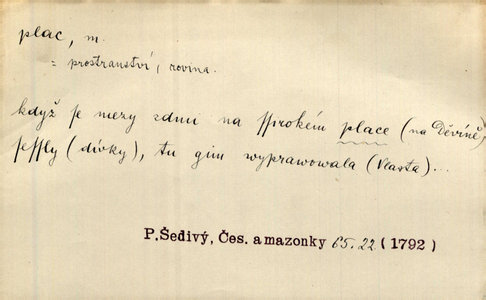 plac, m.
= prostranství, rovina.
když je mezy zdmi na ssirokém place (na Děvíně)
sessly (dívky), tu gim wyprawowala (Vlasta)...
P.Šedivý, Čes. amazonky 65.22 (1792)